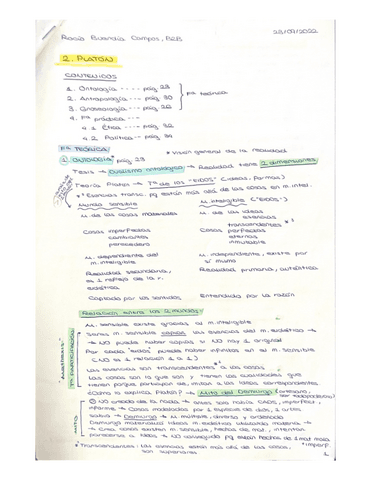 Rocío Buendía Campos, B2B 23/09/2022
2. PLATÓN
CONTENIDOS
1. Ontología ---- pág 28
2. Antropología --- pág 30
3. Gnoseología --- pág
Fª teórica
4. Fª práctica --
4.1 Ética ---- pág 32
4.2 Política --- pág 34
Fª TEÓRICA
* Visión general de la realidad
1. ONTOLOGÍA pág 28
Tesis → Dualismo ontológico → Realidad tiene 2 dimensiones
Teoría Platón → Tª de los "EIDOS" (ideas, formas)
* Esencias transc. pq están más allá de las cosas en m. intel.
Mundo sensible M. inteligible ("EIDOS")
M. de las cosas materiales M. de las ideas
esencias
transcendentes
Cosas imperfectas Cosas perfectas
cambiantes eternas
perecedera inmutable
M. dependiente del M. independiente, existe por
m. inteligible sí mismo
Realidad secundaria, Realidad primaria, auténtica
es 1 reflejo de la r.
eidética
Captado por los sentidos Entendido por la razón
Relación entre los 2 mundos:
M. sensible existe gracias al m. inteligible
Seres m. sensible copias las esencias del m. eidético →
→ NO puede haber copias si NO hay 1 original
Por cada "eidos" puede haber infinitos en el m. sensible
(NO es 1 relación 1 a 1)
Las esencias son transcendentes a las cosas
Las cosas son lo que son y tienen las cualidades que
tienen porque participan de, imitan a las ideas correspondientes
¿Cómo lo explica Platón? → Mito del Demiurgo
MITO
NO creado de la nada → antes solo había CAOS, imperfect.,
informe → Cosas modeladas por 1 especie de dios, 1 artesano
sabio → Demiurgo → M. múltiple, diverso y ordenado
Demiurgo materializa ideas m. eidético utilizando materia →
→ Crea cosas existen m. sensible, hechas de mat., intentan
parecerse a ideas → NO conseguido pq están hechas de 1 mat. mala
* Transcendentes: las esencias están más allá de las cosas,
son superiores
1